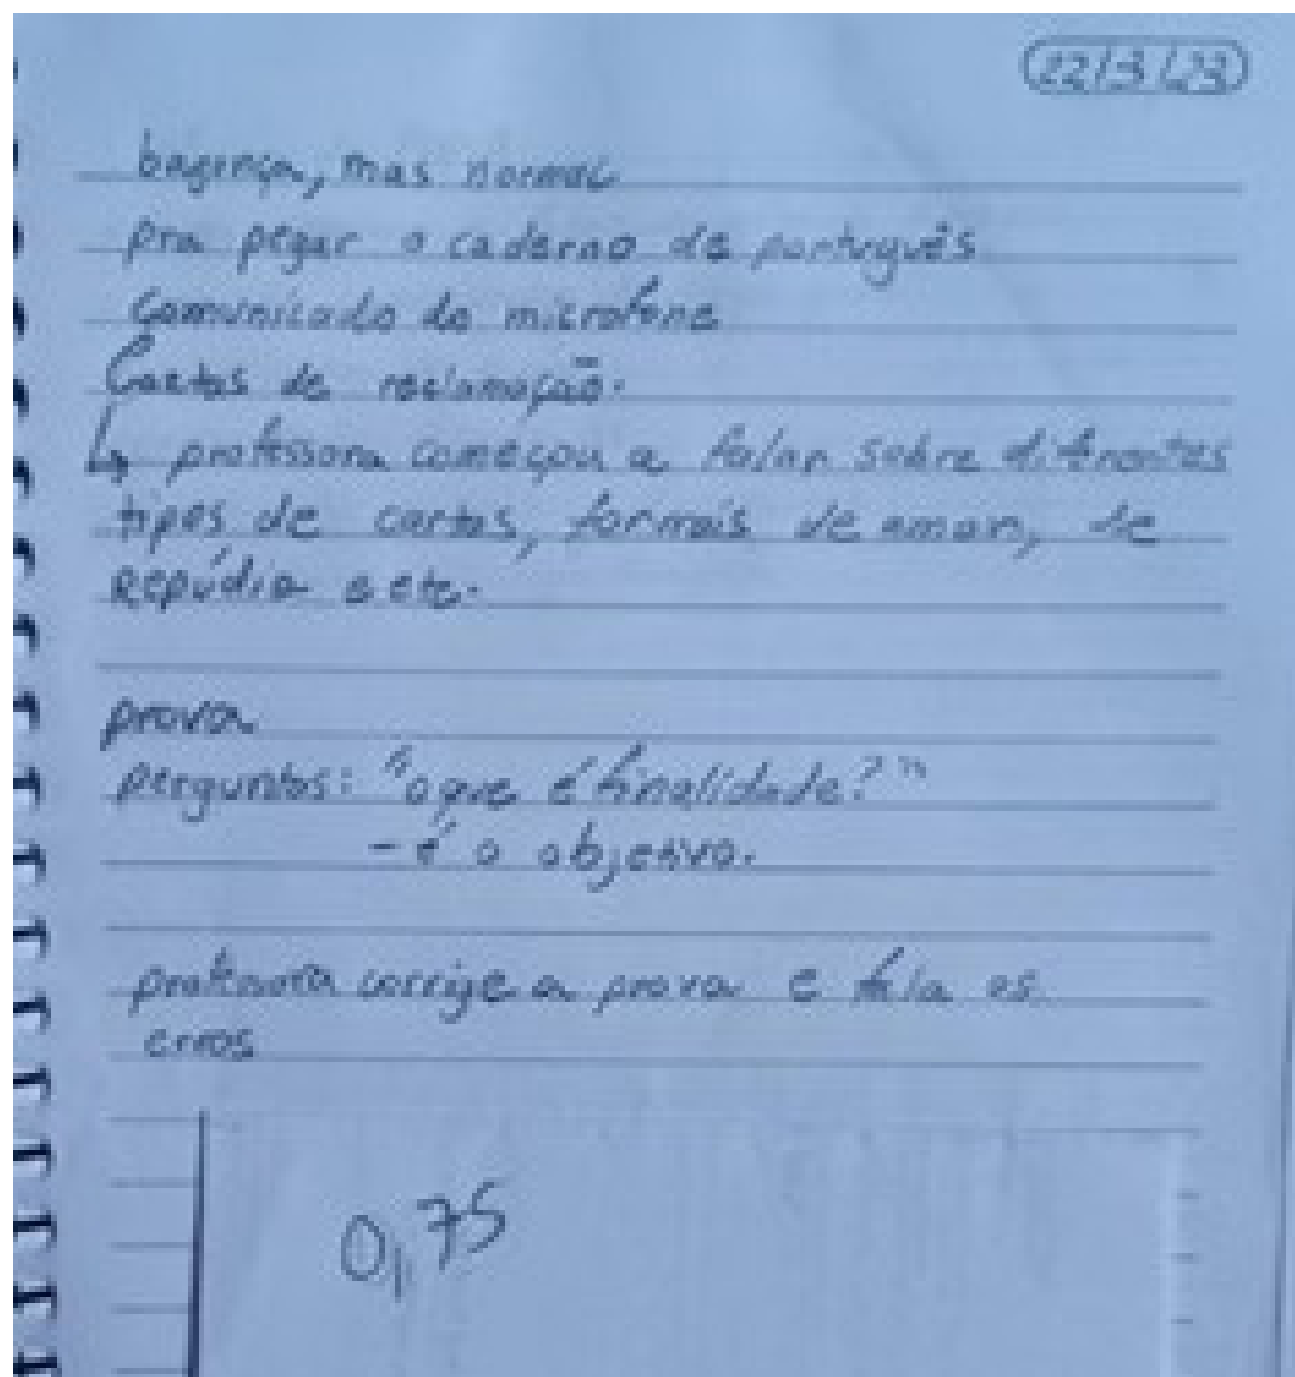 22/3/23
bagunça, mas normal
pra pegar o caderno de português
comunicado do microfone
Cartas de reclamação.
↳ professora começou a falar sobre diferentes
tipos de cartas, formais de amor, de
repúdio e etc.
prova
perguntas: "o que é finalidade?"
- é o objetivo.
professora corrige a prova e fala os
erros
0,75